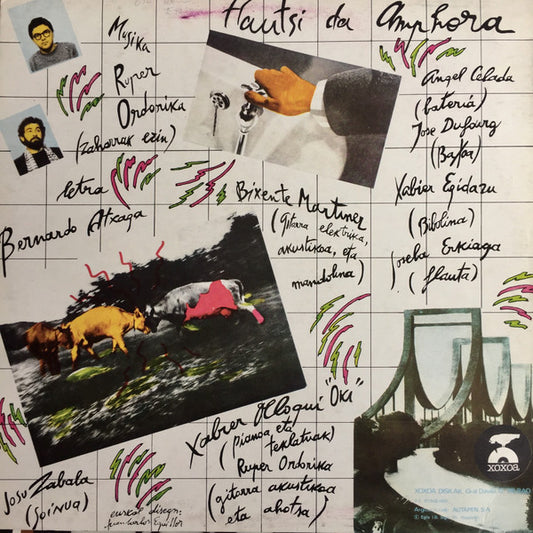 Hautsi da Amphora
Musika
Ruper
Ordorika
(zaharrak ezin)
letra
Bernardo Atxaga
Angel Celada
(bateria)
Jose Dufourg
(Baxoa)
Xabier Egidazu
(Bibolina)
Joseba Erkiaga
(flauta)
Bixente Martinez
(gitarra elektrika,
akustikoa, eta
mandolina)
Xabier Olloqui "OKI"
(pianoa eta
teklatuak)
Ruper Ordorika
(gitarra akustikoa
eta ahotsa)
Josu Zabala
(Soinua)
xoxoa
XOXOA DISKAK,